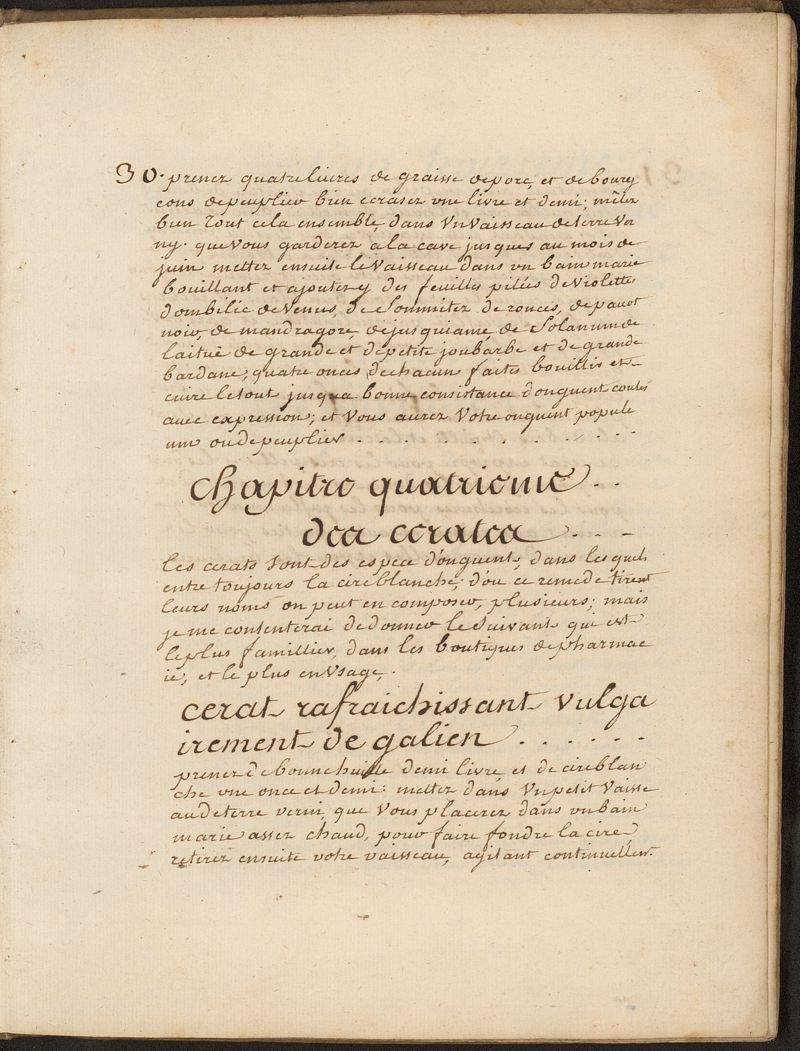 30. prenez quatre livres de graisse de porc, et de bourg
eons de peuplier bien ecrasez une livre et demi; mêlez
bien tout cela ensemble, dans un vaisseau de terre ver
ny. que vous garderez a la cave jusques au mois de
juin mettez ensuite le vaisseau dans un bain marie
bouillant et ajoutez y des feuilles pilées de violettes
d'ombilic de venus, de sommitez de ronces, de pavot
noir, de mandragore de jusquiame de solanum de
laituë de grande et de petite joubarbe et de grande
bardane; quatre onces de chacun faites bouillir et
cuire le tout jusqu'a bonne consistance d'onguent coulez
avec expression; et vous aurez votre onguent popule
um ou de peuplier . . . . . . . . .
chapitre quatrieme . .
des cerates . . .
les cerats sont des espece d'onguent, dans lesquels
entre toujours la cire blanche; d'ou ce remede tirent
leurs noms on peut en composer, plusieurs; mais
je me contenterai de donner le suivant, qui est
le plus famillier, dans les boutiques de pharmac
ie; et le plus en usage, .
cerat rafraichissant vulga
irement de galien . . . . . .
prenez de bonne huille demi livre, et de cire blan
che une once et demi: mettez dans un petit vaisse
au de terre verni, que vous placerez dans un bain
marie assez chaud, pour faire fondre la cire
retirez ensuite votre vaisseau, agitant continuellem.